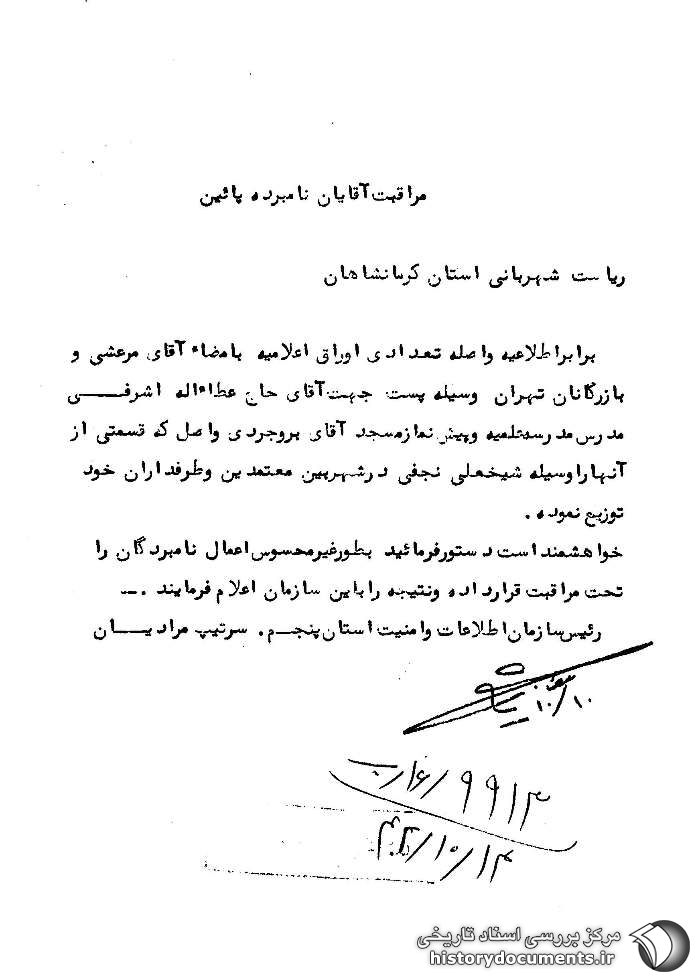 مراقبت آقایان نامبرده پائین
ریاست شهربانی استان کرمانشاهان
برابر اطلاعیه واصله تعدادی اوراق اعلامیه بامضاء آقای مرعشی و
بازرگانان تهران وسیله پست جهت آقای حاج عطاءاله اشرفی
مدرس مدرسه علمیه و پیش نماز مسجد آقای بروجردی واصل که قسمتی از
آنها را وسیله شیخعلی نجفی در شهر بین معتمدین و طرفداران خود
توزیع نموده.
خواهشمند است دستور فرمائید بطور غیر محسوس اعمال نامبردگان را
تحت مراقبت قرار داده و نتیجه را باین سازمان اعلام فرمایند .ــ
رئیس سازمان اطلاعات و امنیت استان پنجم. سرتیپ مرادیان
۱۰/۱۰
۹۹۱۳
۴۲/۱۰/۱۴
مرکز بررسی اسناد تاریخی
historydocuments.ir